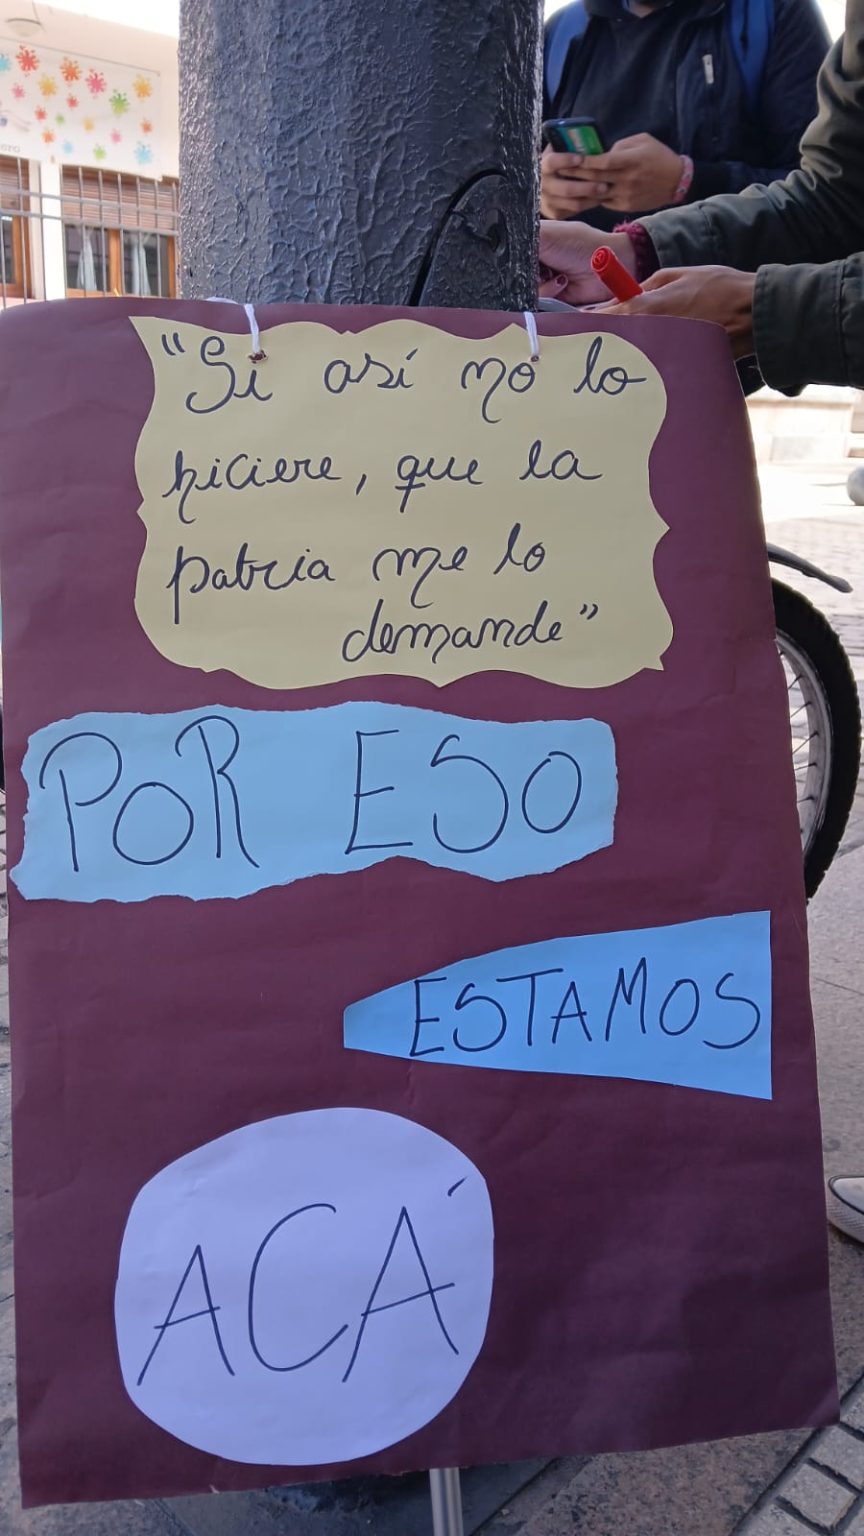 "Si así no lo
hiciere, que la
patria me lo
demande"
POR ESO
ESTAMOS
ACÁ